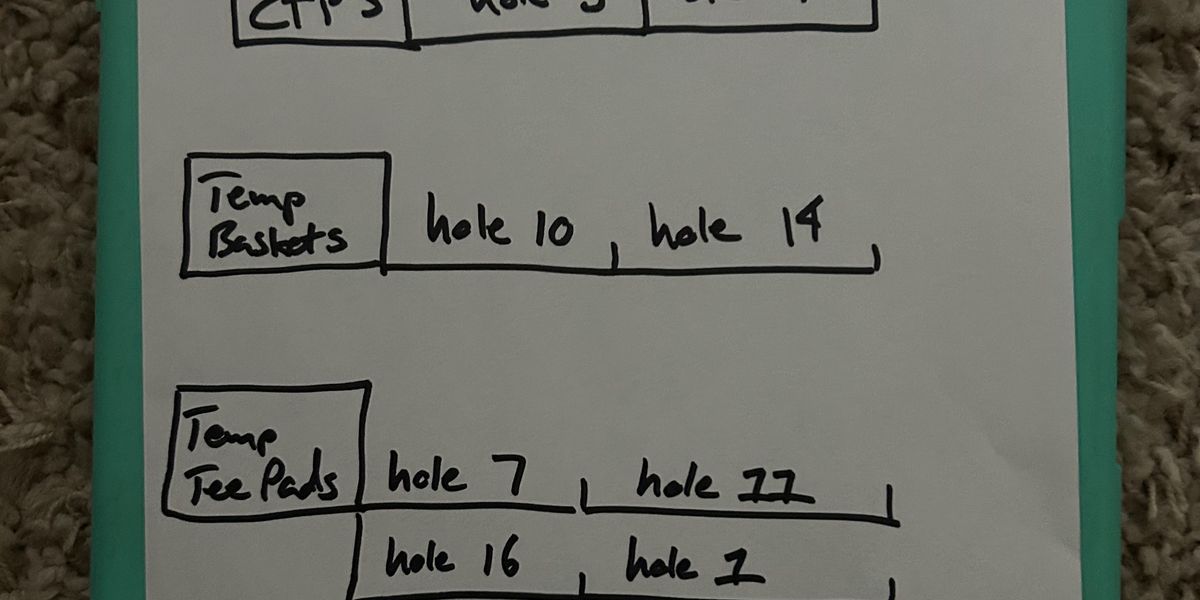 CTP's hole
Temp
Baskets hole 10 hole 14
Temp
Tee Pads hole 7 hole 11
hole 16 hole 1